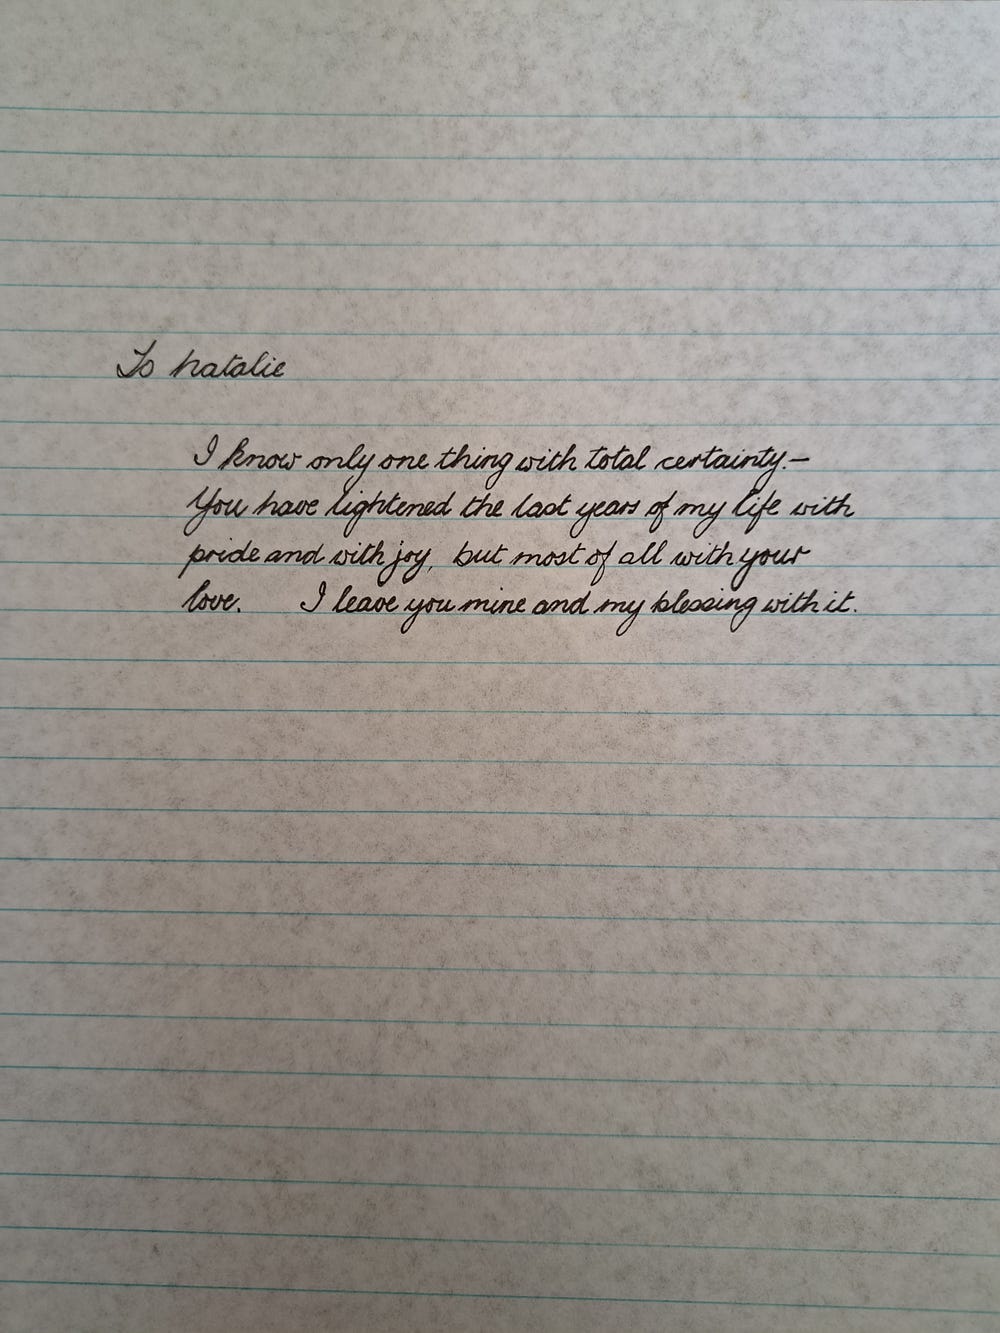 To Natalie
I know only one thing with total certainty.—
You have lightened the last years of my life with
pride and with joy, but most of all with your
love. I leave you mine and my blessing with it.